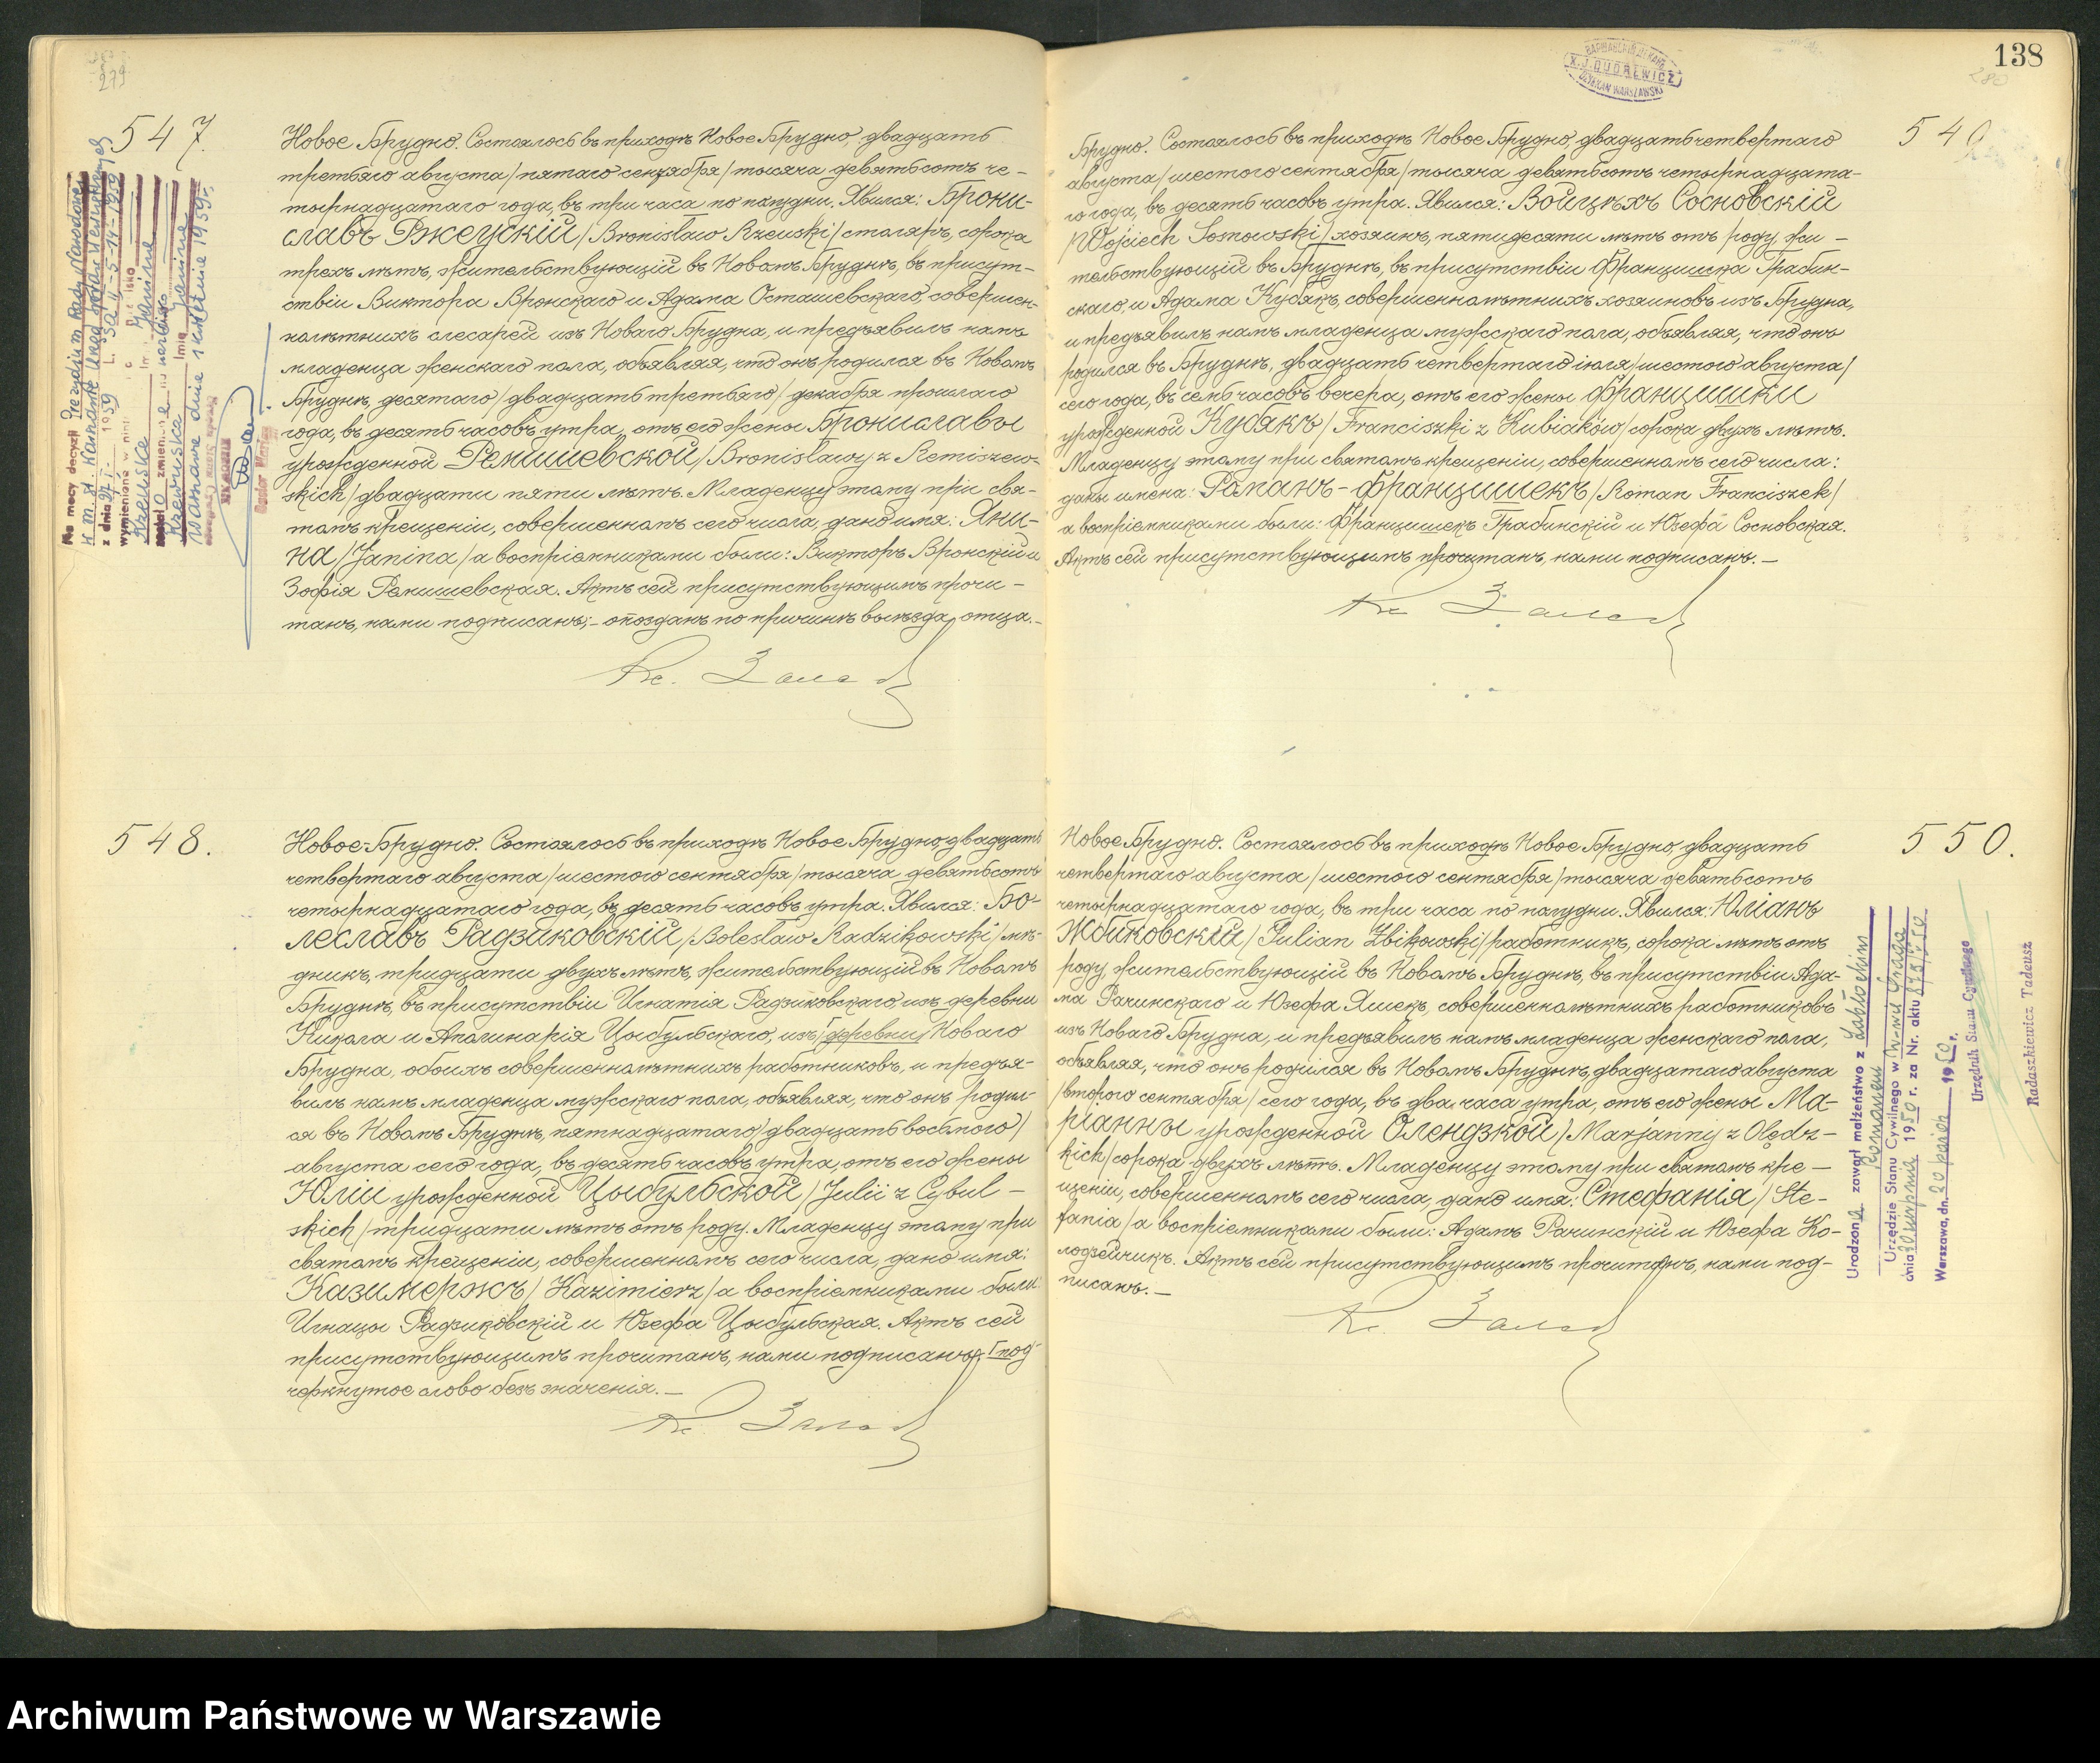 279
547.
Новое Брудно. Состоялось въ приходѣ Новое Брудно, двадцать
третьяго августа /пятаго сентября/ тысяча девятьсотъ че-
тырнадцатаго года, въ три часа по полудни. Явился: Брони-
славъ Ржеускій /Bronisław Rzeuski/ столяръ, сорока
трехъ лѣтъ, жительствующій въ Новомъ Бруднѣ, въ присут-
ствіи Виктора Вронскаго и Адама Осташевскаго, совершен-
нолѣтнихъ слесарей изъ Новаго Брудна, и предъявилъ намъ
младенца женскаго пола, объявляя, что онъ родился въ Новомъ
Бруднѣ, десятаго /двадцать третьяго/ декабря прошлаго
года, въ десять часовъ утра, отъ его жены Брониславы
урожденной Ремишевской /Bronisławy z Remiszew-
skich/ двадцати пяти лѣтъ. Младенцу этому при свя-
томъ крещеніи, совершенномъ сего числа, дано имя: Яни-
на /Janina/ а воспріемниками были: Викторъ Вронскій и
Зофія Ремишевская. Актъ сей присутствующимъ прочи-
танъ, нами подписанъ; - опозданъ по причинѣ выѣзда отца.-
Na mocy decyzji Prezydium Rady Narodowej
z dnia 27.I. 1959 L. SA II-5-14-1959
wymienione w nin
Rzeuska Janina
Rzewuska imię Janina
Warszawa dnia 1 kwietnia 1959 r.
548.
Новое-Брудно. Состоялось въ приходѣ Новое Брудно, двадцать
четвертаго августа /шестого сентября/ тысяча девятьсотъ
четырнадцатаго года, въ десять часовъ утра. Явился: Бо-
леславъ Радзиковскій /Bolesław Radzikowski/ мѣ-
дникъ, тридцати двухъ лѣтъ, жительствующій въ Новомъ
Бруднѣ, въ присутствіи Игнатія Радзиковскаго изъ деревни
и Аполинарія Цыбульскаго, изъ /деревни/ Новаго
Брудна, обоихъ совершеннолѣтнихъ работниковъ, и предъя-
вилъ намъ младенца мужскаго пола, объявляя, что онъ родил-
ся въ Новомъ Бруднѣ, пятнадцатаго /двадцать восьмого/
августа сего года, въ десять часовъ утра, отъ его жены
Юліи урожденной Цыбульской /Julii z Cybul-
skich/ тридцати лѣтъ отъ роду. Младенцу этому при
святомъ крещеніи, совершенномъ сего числа, дано имя:
Казимержъ /Kazimierz/ а воспріемниками были:
Игнацы Радзиковскій и Юзефа Цыбульская. Актъ сей
присутствующимъ прочитанъ, нами подписанъ; под-
черкнутое слово безъ значенія.-
138
280
X.J.DUDREWICZ
DZIEKAN WARSZAWSKI
549
Брудно. Состоялось въ приходѣ Новое Брудно, двадцать четвертаго
августа /шестого сентября/ тысяча девятьсотъ четырнадцата-
го года, въ десять часовъ утра. Явился: Войцѣхъ Сосновскій
/Wojciech Sosnowski/ хозяинъ, пятидесяти лѣтъ отъ роду, жи-
тельствующій въ Бруднѣ, въ присутствіи Францишка Грабин-
скаго, и Адама Кубякъ, совершеннолѣтнихъ хозяиновъ изъ Брудна,
и предъявилъ намъ младенца мужскаго пола, объявляя, что онъ
родился въ Бруднѣ, двадцать четвертаго іюля /шестого августа/
сего года, въ семь часовъ вечера, отъ его жены Францишки
урожденной Кубякъ /Franciszki z Kubiaków/ сорока двухъ лѣтъ.
Младенцу этому при святомъ крещеніи, совершенномъ сего числа:
даны имена: Романъ-Францишекъ /Roman Franciszek/
а воспріемниками были: Францишекъ Грабинскій и Юзефа Сосновская.
Актъ сей присутствующимъ прочитанъ, нами подписанъ.-
550.
Новое Брудно. Состоялось въ приходѣ Новое Брудно, двадцать
четвертаго августа /шестого сентября/ тысяча девятьсотъ
четырнадцатаго года, въ три часа по полудни. Явился: Юліанъ
Жбиковскій /Julian Żbikowski/ работникъ, сорока лѣтъ отъ
роду, жительствующій въ Новомъ Бруднѣ, въ присутствіи Ада-
ма Рачинскаго и Юзефа Яшекъ, совершеннолѣтнихъ работниковъ
изъ Новаго Брудна, и предъявилъ намъ младенца женскаго пола,
объявляя, что онъ родился въ Новомъ Бруднѣ, двадцатаго августа
/второго сентября/ сего года, въ два часа утра, отъ его жены Ма-
ріанны урожденной Олендзкой /Marjanny z Olędz-
kich/ сорока двухъ лѣтъ. Младенцу этому при святомъ кре-
щеніи, совершенномъ сего числа, дано имя: Стефанія /Ste-
fania/ а воспріемниками были: Адамъ Рачинскій и Юзефа Ко-
лодзейчикъ. Актъ сей присутствующимъ прочитанъ, нами под-
писанъ.-
Urodzona zawarł małżeństwo z
Romanem
Urzędzie Stanu Cywilnego w
dnia 30 sierpnia 1950 r. za Nr. aktu
Warszawa, dn. 20 1950 r.
Urzędnik Stanu Cywilnego
Radaszkiewicz Tadeusz
Archiwum Państwowe w Warszawie